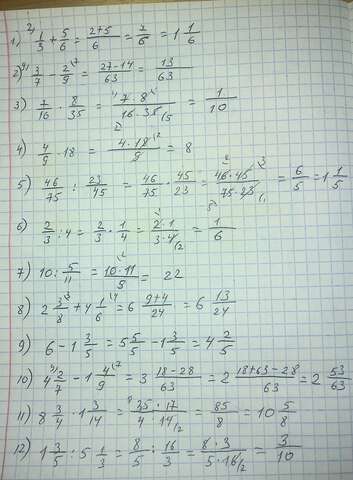 1) 2/ 1/3 + 5/6 = (2+5)/6 = 7/6 = 1 1/6
2) 9/ 3/7 - 2/9 /7 = (27-14)/63 = 13/63
3) 7/16 · 8/35 = (7·8)/(16·35) = 1/10
4) 4/9 · 18 = (4·18)/9 = 8
5) 46/75 : 23/45 = 46/75 · 45/23 = (46·45)/(75·23) = 6/5 = 1 1/5
6) 2/3 : 4 = 2/3 · 1/4 = (2·1)/(3·4) = 1/6
7) 10 : 5/11 = (10·11)/5 = 22
8) 2 3/8 + 4 1/6 = 6 (9+4)/24 = 6 13/24
9) 6 - 1 3/5 = 5 5/5 - 1 3/5 = 4 2/5
10) 4 2/7 - 1 4/9 = 3 (18-28)/63 = 2 (18+63-28)/63 = 2 53/63
11) 8 3/4 · 1 3/14 = (35·17)/(4·14) = 85/8 = 10 5/8
12) 1 3/5 : 5 1/3 = 8/5 : 16/3 = (8·3)/(5·16) = 3/10